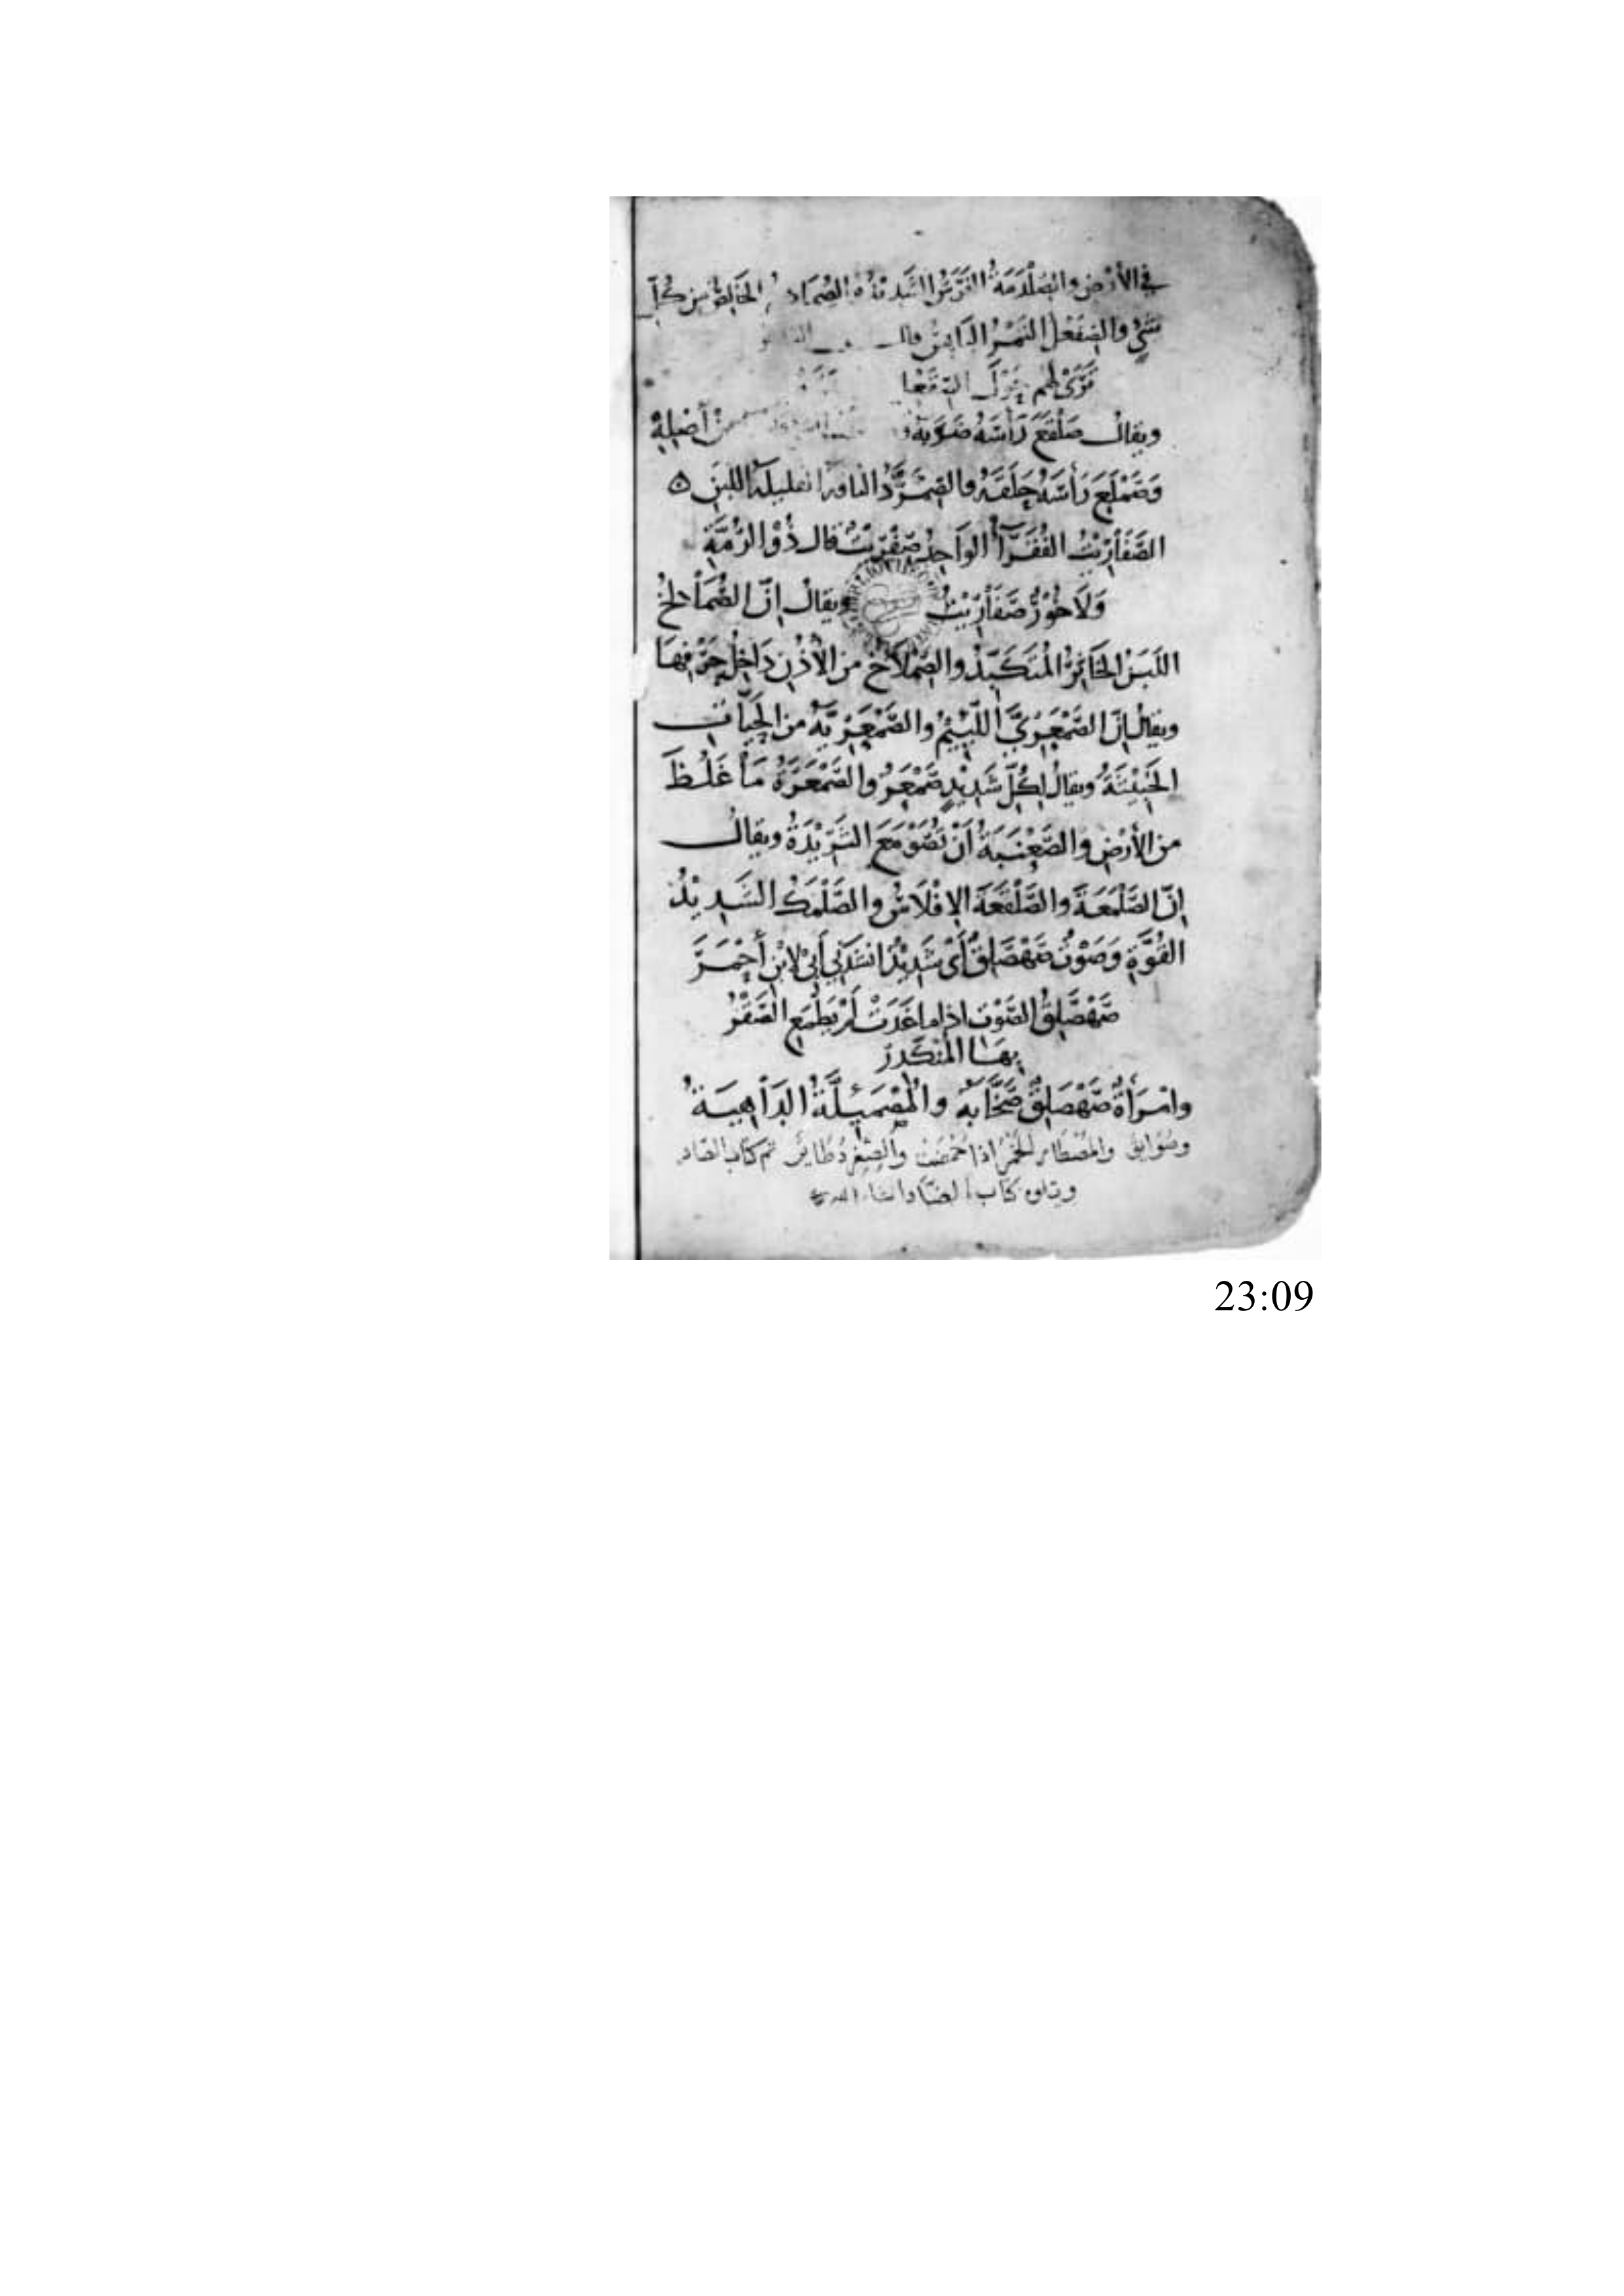 في الأَرْضِ والصِّلْدِمَةُ الفَرَسُ الشَّدِيْدَةُ الصُّمَادِحُ الخَالِصُ مِنْ كُلِّ
شَيْءٍ والصَّقَعْلُ التَّمْرُ اليَابِسُ قال
تَرَى لهم حَوْلَ الصِّقَعْلِ
ويقال صَلْقَعَ رَأْسَهُ ضَرَبَهُ مِنْ أَصْلِهِ
وَصَمْلَعَ رَأْسَهُ حَلَقَهُ والصِّمْرِدُ الناقة القليلة اللبن ه
الصَّفَارِيْتُ الفُقَرَآءُ الوَاحِدُ صِفْرِيْتٌ قال ذُوْ الرُّمَّةِ
وَلَا خُوْرٌ صَفَارِيْتُ ويقال إنّ الصُّمَالِخَ
اللَّبَنُ الخَاثِرُ المُتَكَبِّدُ والصِّمْلَاخُ من الأُذُنِ دَاخِلُ خَرْقِهَا
ويقال إنّ الصَّمْعَرِيَّ اللَّئِيْمُ والصَّمْعَرِيَّةُ من الحَيَّاتِ
الخَبِيْثَةُ ويقال لكُلِّ شَدِيْدٍ صَمْعَرٌ والصَّمْعَرَةُ مَا غَلُظَ
من الأَرْضِ والصَّعْنَبَةُ أَنْ تُصَوْمَعَ الثَّرِيْدَةُ ويقال
إنّ الصَّلْمَعَةَ والصَّلْقَعَةَ الإفْلَاسُ والصَّلْمَكُ الشَّدِيْدُ
القُوَّةِ وَصَوْتٌ صَهْصَلِقٌ أَيْ شَدِيْدٌ انشدني أبي لابْنِ أَحْمَرَ
صَهْصَلِقُ الصَّوْتِ اذا ما غَدَتْ لَمْ يَطْمَعِ الصَّقْرُ
بِهَا المُنْكَدِرْ
وامْرَأَةٌ صَهْصَلِقٌ صَخَّابَةٌ والمُصْمَئِلَّةُ الدَّاهِيَةُ
والمُصْطَار الخَمْرُ اذا حَمُضَتْ والصِّفْرِدُ طَايِرٌ تم كتاب الصاد
ويتلوه كتاب الضاد انشاء الله
23:09